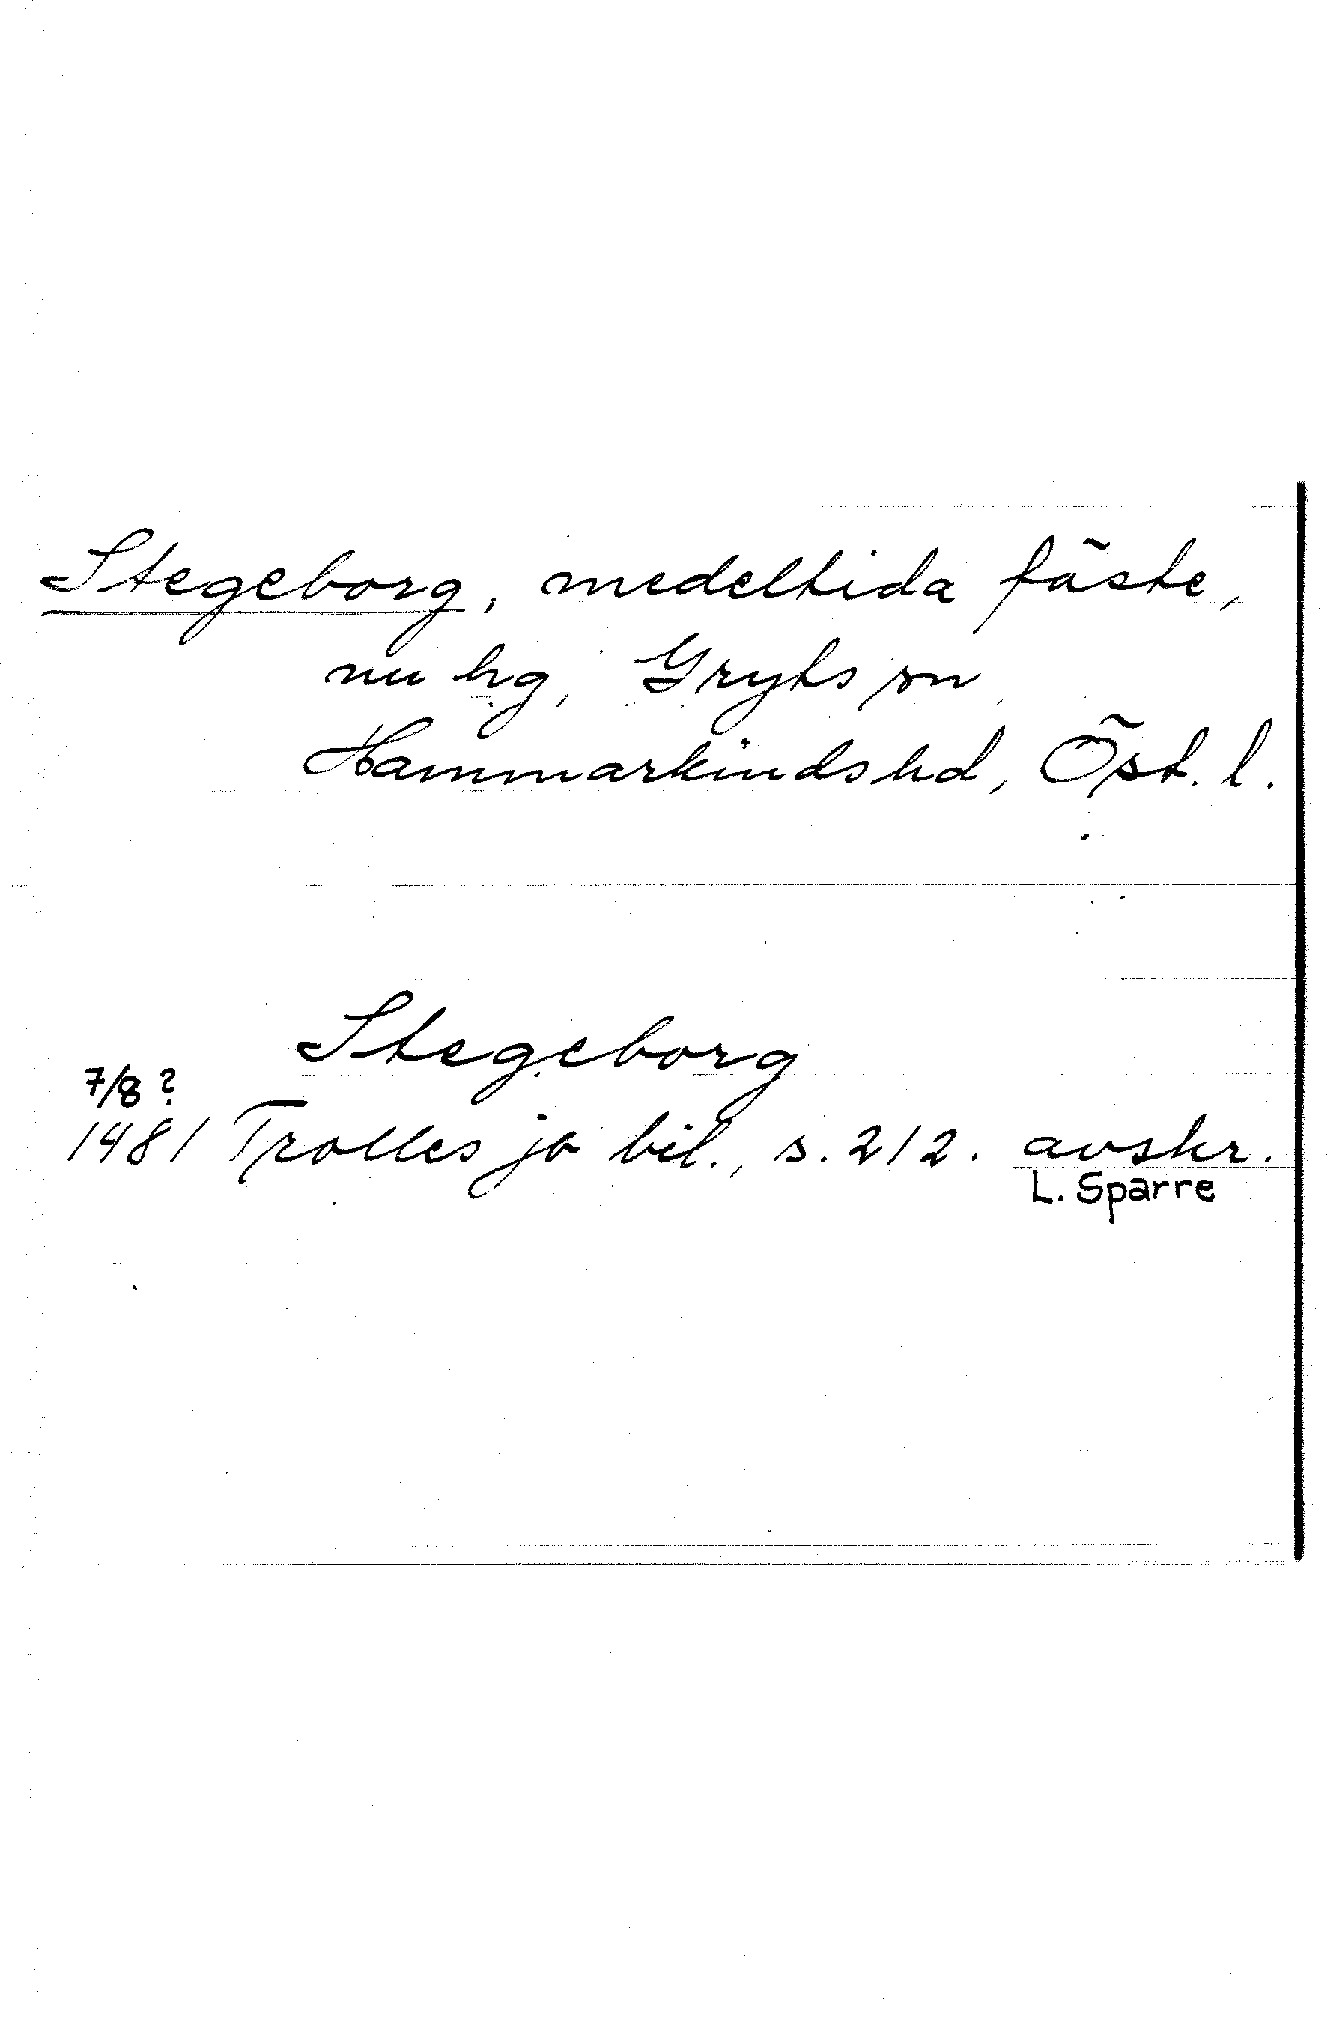 Stegeborg, medeltida fäste,
nu hg, Gryts sn
Hammarkinds hd, Öst. l.
Stegeborg
7/8 ?
1481 Trolles jo bil., s. 212. avskr.
L. Sparre